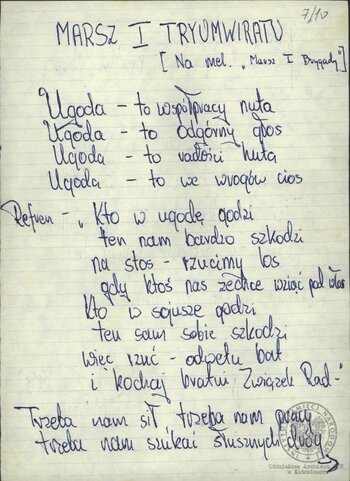 7/10
MARSZ I TRYUMWIRATU
[Na mel. „Marsz I Brygady"]
Ugoda – to współpracy nuta
Ugoda – to odgórny głos
Ugoda – to radości huta
Ugoda – to we wrogów cios
Refren – „Kto w ugodę godzi
ten nam bardzo szkodzi
na stos – rzucimy los
gdy ktoś nas zechce wziąć pod włos
Kto w sojusze godzi
ten sam sobie szkodzi
więc rzuć – odwetu bat
i kochaj bratni Związek Rad–"
Trzeba nam sił, trzeba nam pracy
trzeba nam szukać słusznych dróg
INSTYTUT PAMIĘCI NARODOWEJ
Oddziałowe Archiwum IPN
w Katowicach